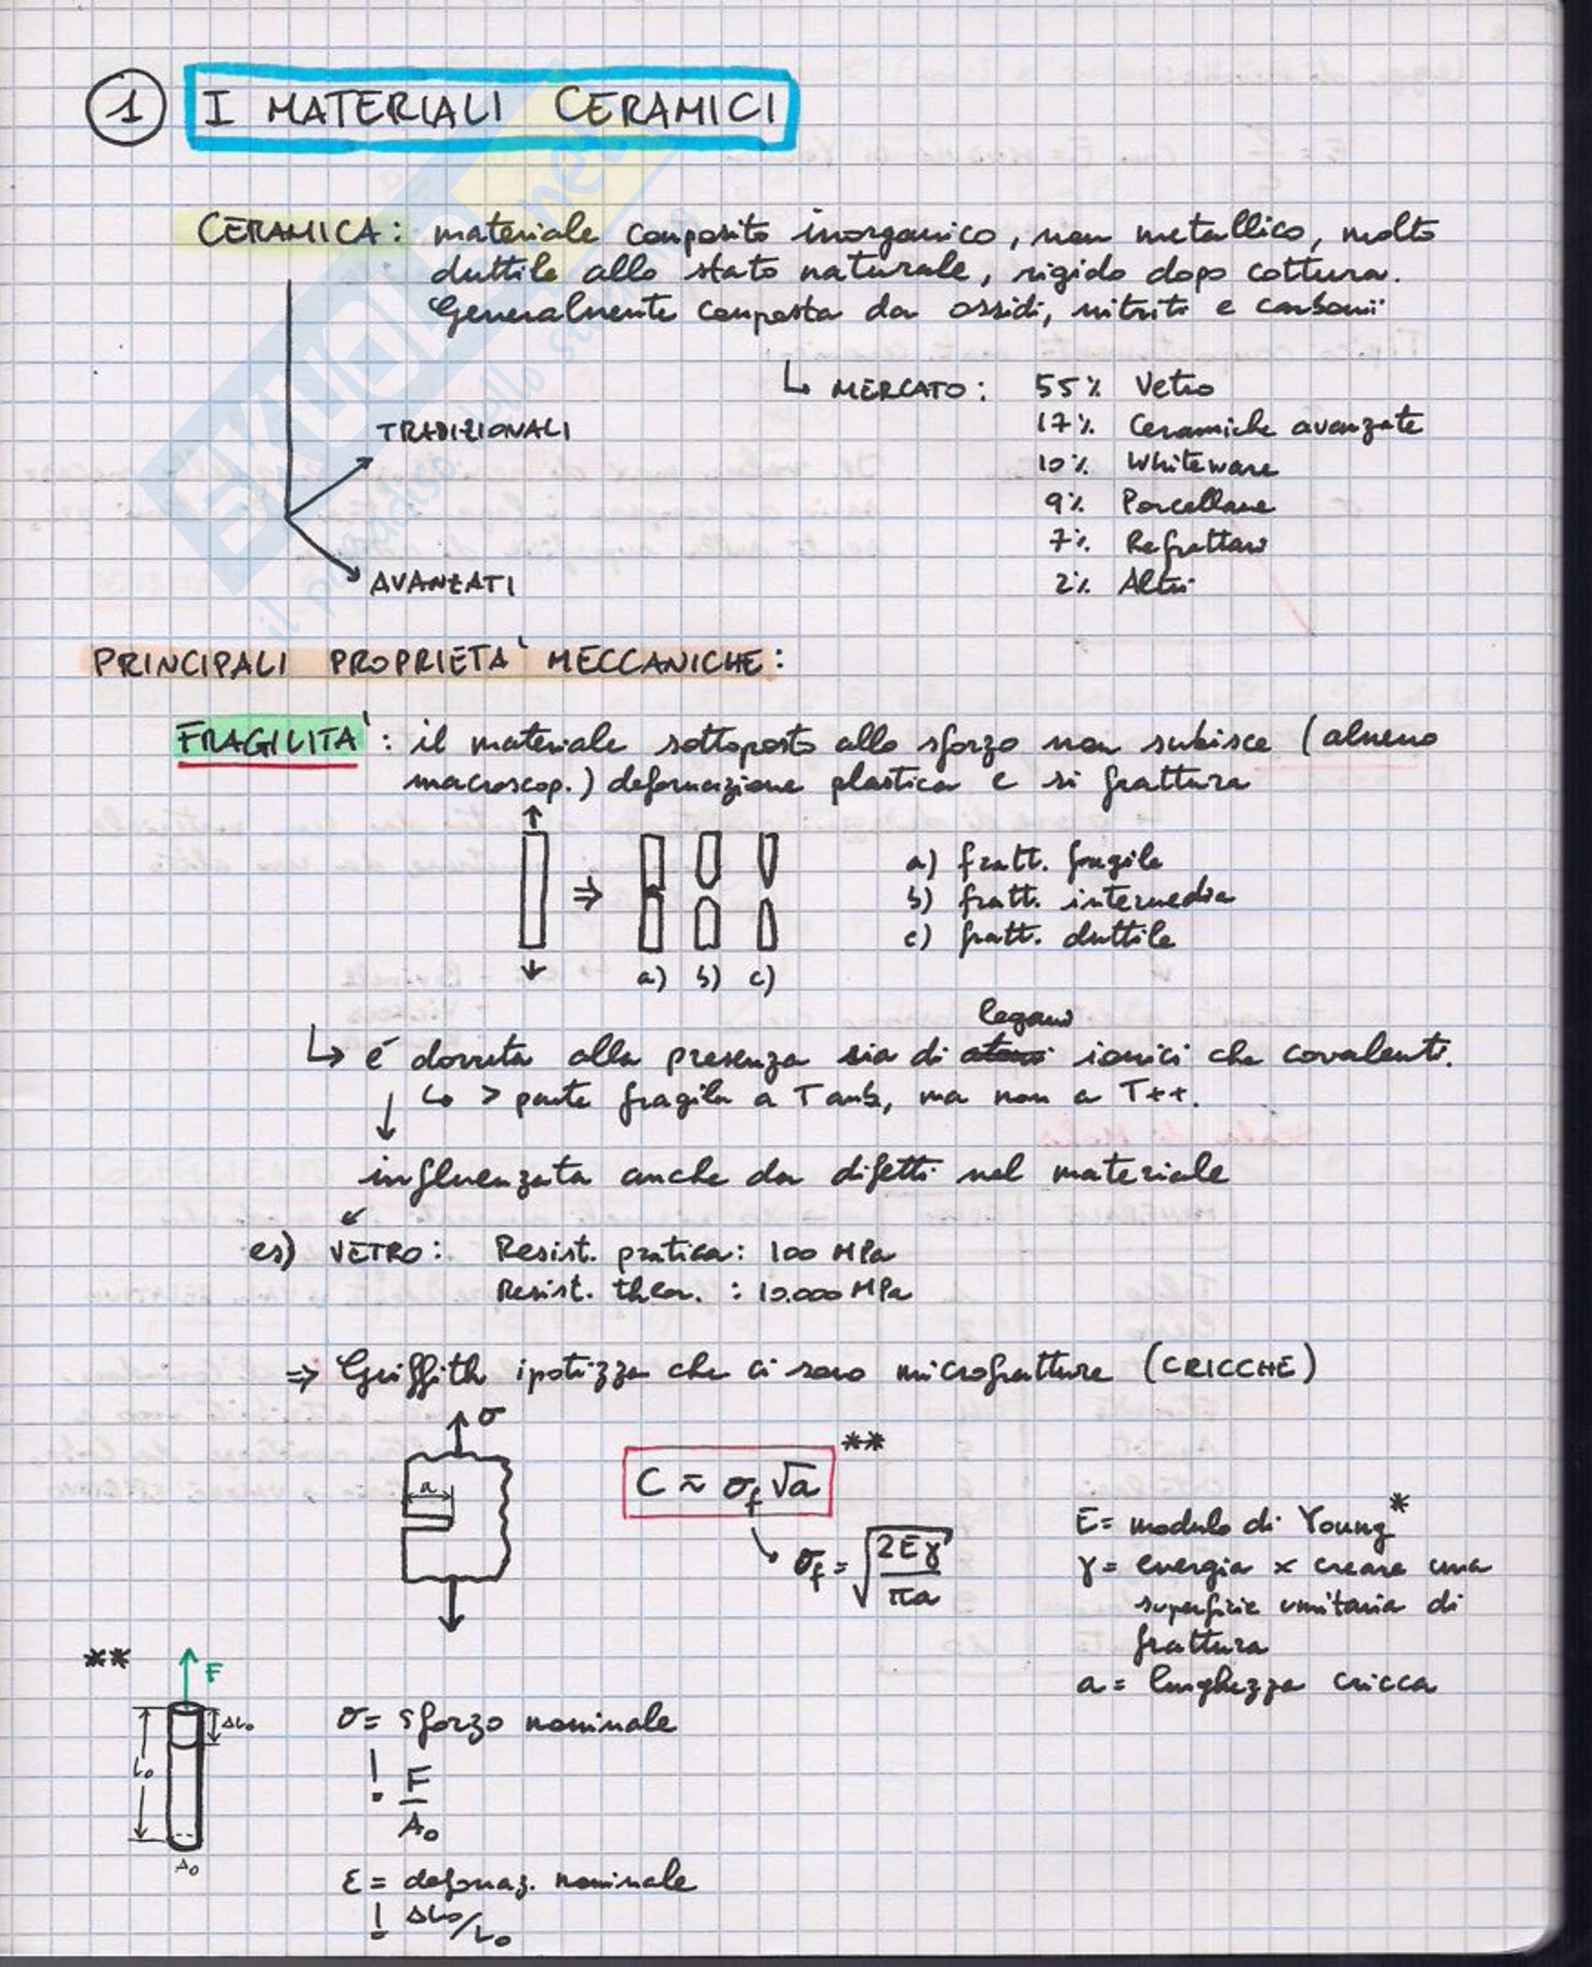 1 I MATERIALI CERAMICI
CERAMICA: materiale composito inorganico, non metallico, molto
duttile allo stato naturale, rigido dopo cottura.
Generalmente composta da ossidi, nitriti e carboni
↳ MERCATO: 55% Vetro
17% Ceramiche avanzate
10% Whiteware
9% Porcellane
7% Refrattari
2% Altri
TRADIZIONALI
AVANZATI
PRINCIPALI PROPRIETA' MECCANICHE:
FRAGILITA': il materiale sottoposto allo sforzo non subisce (almeno
macroscop.) deformazione plastica e si frattura
⇒ a) b) c)
a) fratt. fragile
b) fratt. intermedia
c) fratt. duttile
legami
↳ é dovuta alla presenza sia di atomi ionici che covalenti.
↳ > parte fragile a T amb, ma non a T++.
influenzata anche da difetti nel materiale
es) VETRO: Resist. pratica: 100 MPa
Resist. theor. : 10.000 MPa
⇒ Griffith ipotizza che ci sono microfratture (CRICCHE)
σ
a
C ≈ σf √a **
σf = √(2Eγ/πa)
E = modulo di Young*
γ = energia x creare una
superficie unitaria di
frattura
a = lunghezza cricca
** F
ΔL₀
L₀
A₀
σ = sforzo nominale
F/A₀
ε = deformaz. nominale
ΔL₀/L₀
SKUOLA.net
il paradiso dello studente